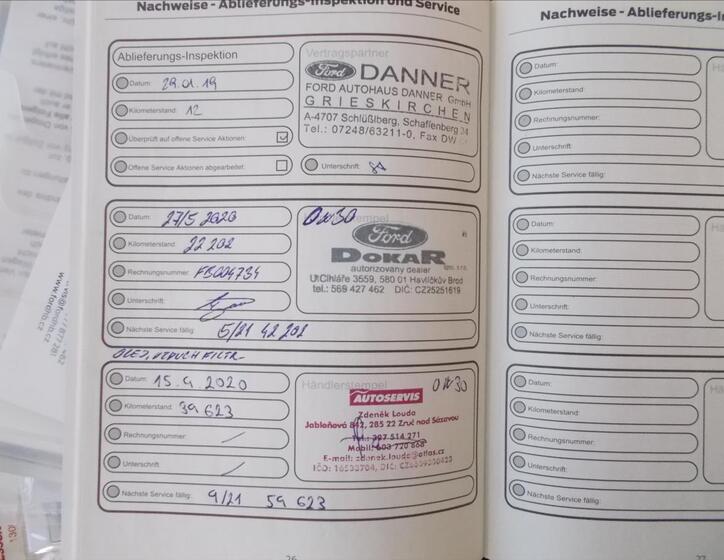 Nachweise - Ablieferungs-Inspektion und Service
Ablieferungs-Inspektion
Datum: 29.01.19
Kilometerstand: 12
Überprüft auf offene Service Aktionen:
Offene Service Aktionen abgearbeitet:
Vertragspartner
Ford DANNER
FORD AUTOHAUS DANNER GmbH
GRIESKIRCHEN
A-4707 Schlüßlberg, Schallenberg 34
Tel.: 07248/63211-0, Fax DW
Unterschrift:
Datum: 27/5 2020
Kilometerstand: 22 202
Rechnungsnummer: FBC04734
Unterschrift:
Nächste Service fällig: 5/21 42 202
0W30
Ford
DOKAR
autorizovaný dealer spol. s r.o.
Ut Cihláře 3559, 580 01 Havlíčkův Brod
tel.: 569 427 462 DIČ: CZ25251619
OLEJ, VZDUCH FILTR
Datum: 15.9.2020
Kilometerstand: 39 623
Rechnungsnummer: /
Unterschrift: /
Nächste Service fällig: 9/21 59 623
Händlerstempel
0W30
AUTOSERVIS
Zdeněk Louda
Jabloňová 842, 285 22 Zruč nad Sázavou
Tel.: 327 514 271
Mobil: 603 720 868
E-mail: zdenek.louda@atlas.cz
26
Nachweise - Ablieferungs-I
Datum:
Kilometerstand:
Rechnungsnummer:
Unterschrift:
Nächste Service fällig:
Datum:
Kilometerstand:
Rechnungsnummer:
Unterschrift:
Nächste Service fällig:
Datum:
Kilometerstand:
Rechnungsnummer:
Unterschrift:
Nächste Service fällig:
27